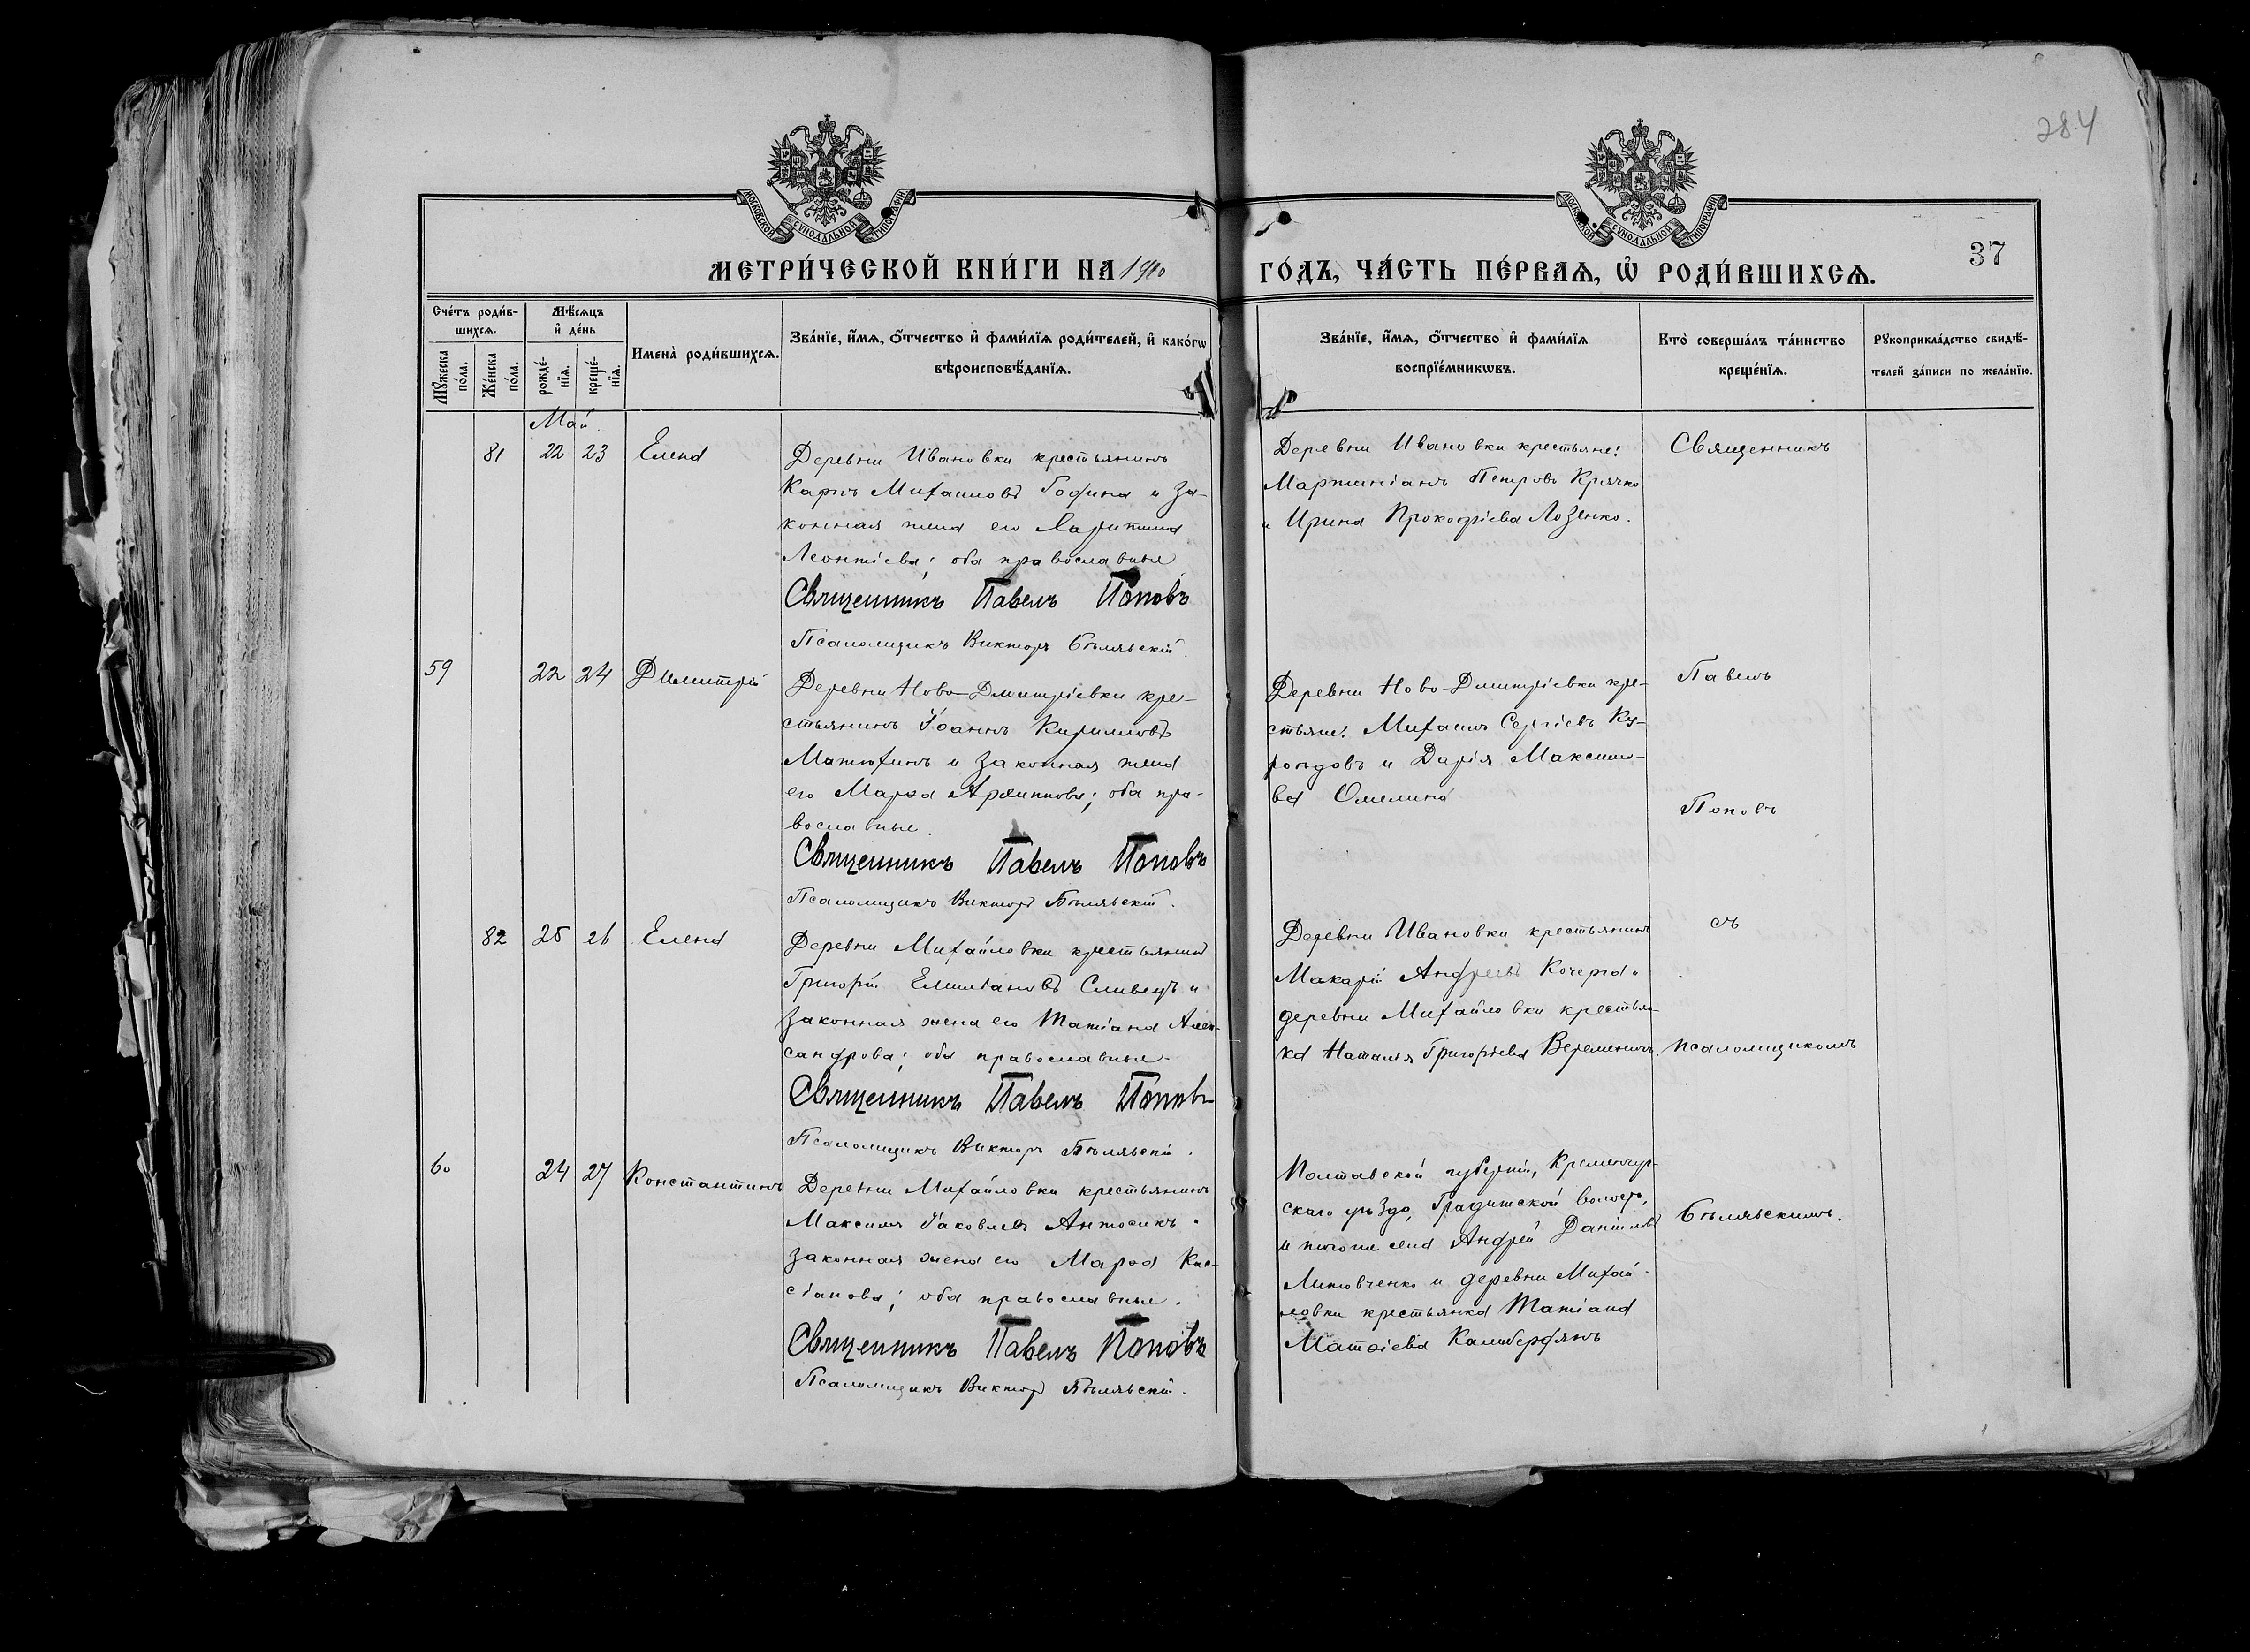 284
МОСКОВСКОЙ СѴНОДАЛЬНОЙ ТИПОГРАФІИ
МОСКОВСКОЙ СѴНОДАЛЬНОЙ ТИПОГРАФІИ
37
МЕТРИ́ЧЕСКОЙ КНИ́ГИ НА 1910
ГО́ДЪ, ЧА́СТЬ ПЕ́РВАЯ, Ѡ҆ РОДИ́ВШИХСЯ.
Счéтъ роди́в-
шихсѧ.
Мꙋ́жеска по́ла.
Же́нска по́ла.
Мѣ́сѧцъ
и҆ де́нь
рожде́-
нїѧ.
креще́-
нїѧ.
Имена̀ роди́вшихсѧ.
Зва́нїе, и҆́мѧ, ѻ҆́тчество и҆ фами́лїѧ роди́телей, и҆ како́гѡ
вѣроисповѣ́данїѧ.
Зва́нїе, и҆́мѧ, ѻ҆́тчество и҆ фами́лїѧ
воспрїе́мникѡвъ.
Кто̀ соверша́лъ та́инство
креще́нїѧ.
Рꙋкоприкла́дство свидѣ́-
телей за́писи по жела́нїю.
Май.
81 22 23 Елена
Деревни Ивановки крестьянинъ
Карпъ Михаиловъ Година и за-
конная жена его Харитина
Леонтіева; оба православные
Священникъ Павелъ Поповъ
Псаломщикъ Викторъ Бѣлявскій
Деревни Ивановки крестьяне:
Мартиніанъ Петровъ Крячко
и Ирина Прокофіева Лозенко.
Священникъ
59 22 24 Димитрій
Деревни Ново-Дмитріевки кре-
стьянинъ Іоаннъ Кирилловъ
Матюхинъ и законная жена
его Марѳа Архиппова; оба пра-
вославные.
Священникъ Павелъ Поповъ
Псаломщикъ Викторъ Бѣлявскій.
Деревни Ново-Дмитріевки кре-
стьяне: Михаилъ Сергіевъ
и Дарія Максимо-
ва Омелина
Павелъ
Поповъ
82 25 26 Елена
Деревни Михайловки крестьянинъ
Григорій Емиліановъ Сливецъ и
законная жена его Татіана Алек-
сандрова; оба православные.
Священникъ Павелъ Поповъ
Псаломщикъ Викторъ Бѣлявскій.
Деревни Ивановки крестьянинъ
Макарій Андреевъ Кочерга и
деревни Михайловки крестьян-
ка Наталія Григорьева
съ
псаломщикомъ
60 24 27 Константинъ
Деревни Михайловки крестьянинъ
Максимъ Іаковлевъ Антосикъ и
законная жена его Марѳа Кас-
сіанова; оба православные.
Священникъ Павелъ Поповъ
Псаломщикъ Викторъ Бѣлявскій.
Полтавской губерніи, Кременчуг-
скаго уѣзда, Градижской волости,
и того же села Андрей Даніиловъ
Литовченко и деревни Михай-
ловки крестьянка Татіана
Матѳіева
Бѣлявскимъ.